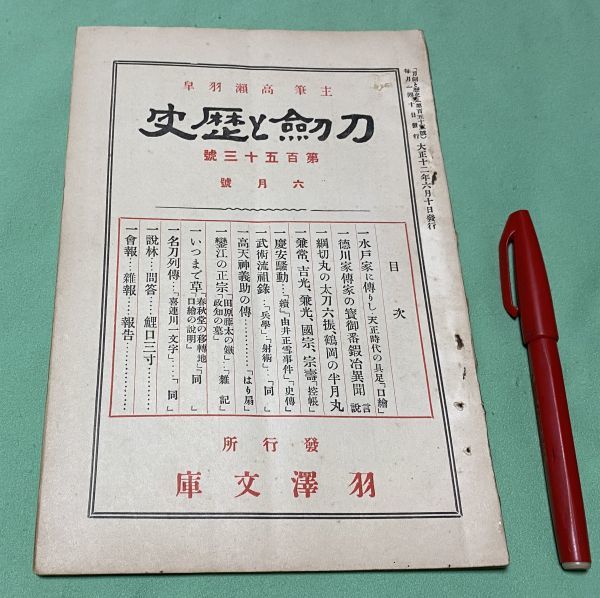 「刀劍と歴史」(第百五十三號)
每月一回十日發行
大正十二年六月十日發行
主筆高瀬羽皐
刀劍と歴史
第百五十三號
六月號
目次
一水戸家に傳りし天正時代の具足「口繪」
一德川家傳家の寶御番鍛冶異聞「言說」
一綱切丸の太刀六振、鶴岡の半月丸
一兼常、吉光、兼光、國宗、宗壽「控帳」
一慶安騷動…「續」由井正雪事件「史傳」
一武術流祖錄…「兵學」「射術」…「同」
一高天神義助の傳…………「はり扇」
一鑾江の正宗「田原藤太の鏃」「政知の墓」「雜記」
一いつまで草「春秋堂の移轉地」「口繪の說明」「同」
一名刀列傳…「喜連川一文字」…「同」
一說林…問答……鯉口三寸…………
一會報…雜報……報告………………
發行所
羽澤文庫